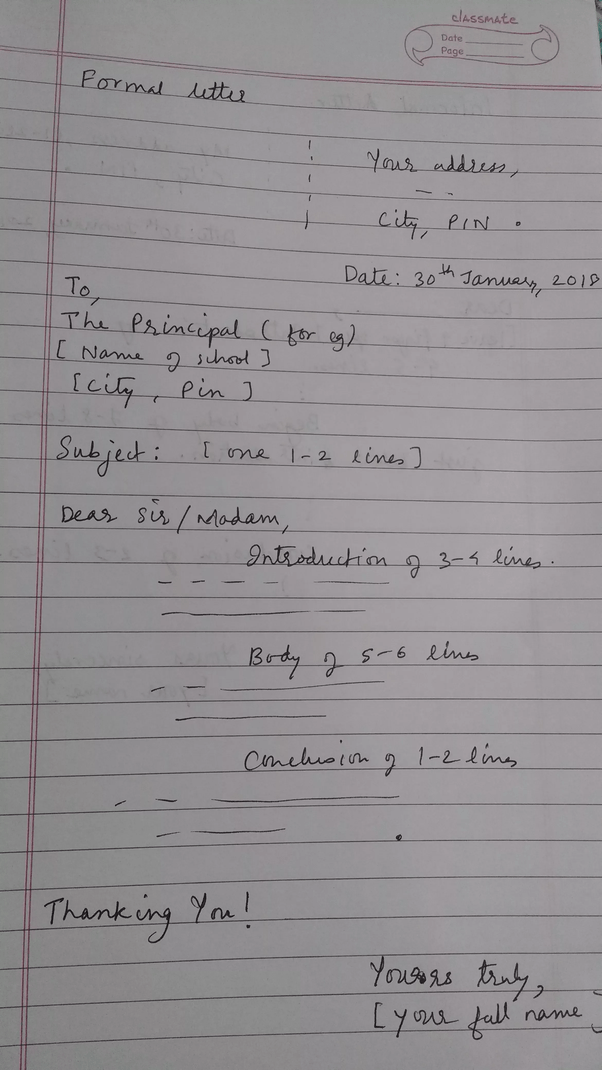 classmate
Date
Page
Formal letter
Your address,
City, PIN.
Date: 30th January, 2018
To,
The Principal (for eg)
[Name of school]
[City, Pin]
Subject: [one 1-2 lines]
Dear Sir/Madam,
Introduction of 3-4 lines.
Body of 5-6 lines
Conclusion of 1-2 lines
Thanking You!
Yours truly,
[your full name